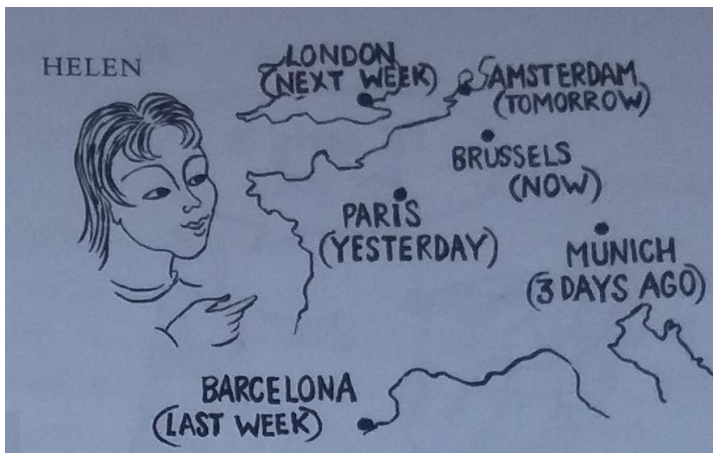 HELEN
LONDON
(NEXT WEEK)
AMSTERDAM
(TOMORROW)
BRUSSELS
(NOW)
PARIS
(YESTERDAY)
MUNICH
(3 DAYS AGO)
BARCELONA
(LAST WEEK)